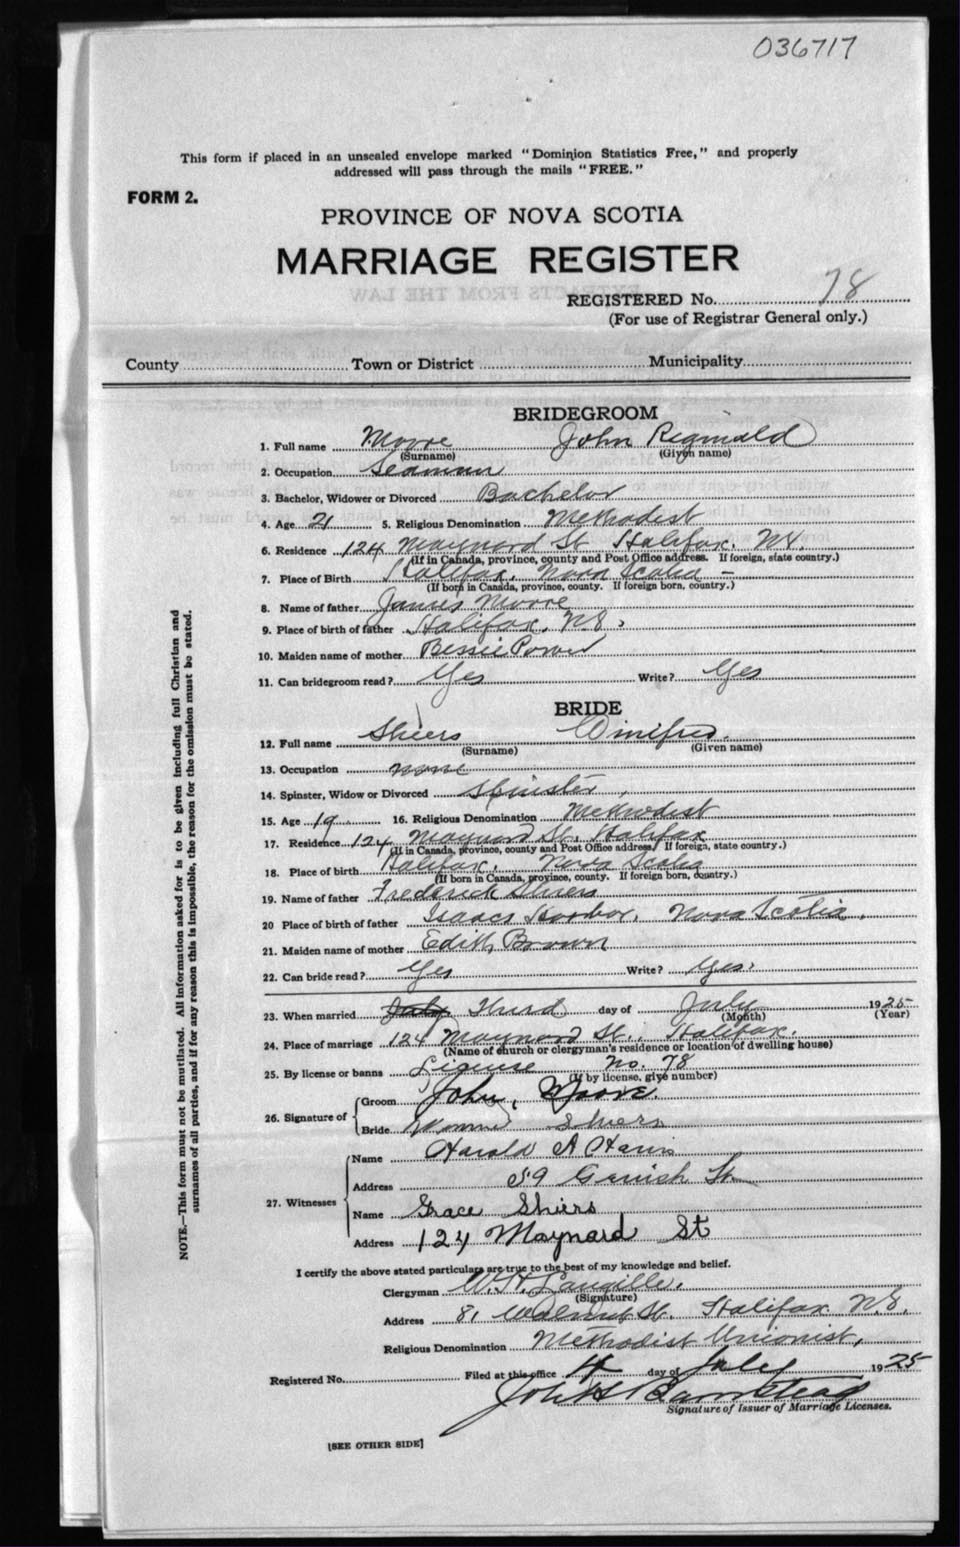 036717
This form if placed in an unsealed envelope marked "Dominion Statistics Free," and properly
addressed will pass through the mails "FREE."
FORM 2.
PROVINCE OF NOVA SCOTIA
MARRIAGE REGISTER
REGISTERED No. 78
(For use of Registrar General only.)
EXTRACTS FROM THE LAW
County Town or District Municipality
BRIDEGROOM
1. Full name Moore John Reginald
(Surname) (Given name)
2. Occupation Seaman
3. Bachelor, Widower or Divorced Bachelor
4. Age 21 5. Religious Denomination Methodist
6. Residence 124 Maynard St. Halifax. N.S.
(If in Canada, province, county and Post Office address. If foreign, state country.)
7. Place of Birth Halifax, Nova Scotia -
(If born in Canada, province, county. If foreign born, country.)
8. Name of father James Moore
9. Place of birth of father Halifax, N.S,
10. Maiden name of mother Bessie Power
11. Can bridegroom read? Yes Write? Yes
BRIDE
12. Full name Shiers Winifred.
(Surname) (Given name)
13. Occupation none
14. Spinster, Widow or Divorced Spinster,
15. Age 19. 16. Religious Denomination Methodist
17. Residence 124 Maynard St. Halifax
(If in Canada, province, county and Post Office address. If foreign, state country.)
18. Place of birth Halifax, Nova Scotia
(If born in Canada, province, county. If foreign born, country.)
19. Name of father Frederick Shiers
20 Place of birth of father Isaacs Harbor, Nova Scotia.
21. Maiden name of mother Edith Brown
22. Can bride read? Yes Write? Yes.
23. When married July Third day of July 1925
(Month) (Year)
24. Place of marriage 124 Maynard St., Halifax.
(Name of church or clergyman's residence or location of dwelling house)
25. By license or banns License No. 78
(If by license, give number)
26. Signature of
Groom John, Moore.
Bride Shiers
27. Witnesses
Name Harold A
Address 59 St
Name Grace Shiers
Address 124 Maynard St
I certify the above stated particulars are true to the best of my knowledge and belief.
Clergyman W. H. Langille.
(Signature)
Address 81 Walnut St. Halifax N.S.
Religious Denomination Methodist Unionist,
Registered No. Filed at this office 4 day of July 1925
John Barnstead
Signature of Issuer of Marriage Licenses.
[SEE OTHER SIDE]
NOTE.—This form must not be mutilated. All information asked for is to be given including full Christian and
surnames of all parties, and if for any reason this is impossible, the reason for the omission must be stated.